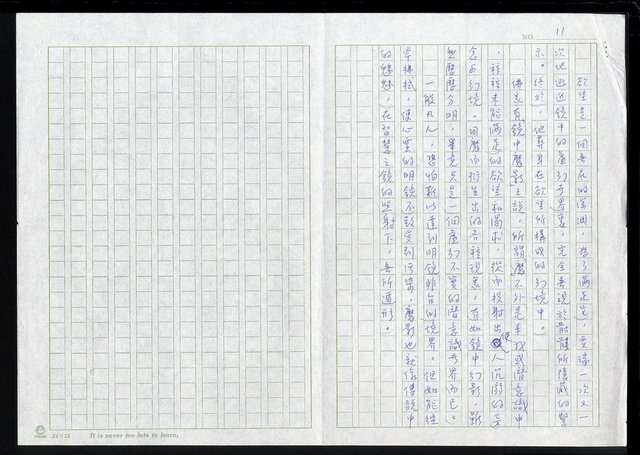 NO. 11
欲望是一個無底的深淵，為了滿足它，賈瑞一次又一
次地逃進鏡中的虛幻世界裏，完全無視於骷髏所隱藏的警
示。終於，他葬身在欲望所構成的幻境中。
佛家有「鏡中魔影」之說，所謂魔不外是本我或潛意識中
，種種未能滿足的欲望和渴求，從而投射出使人沉溺的意
念與幻境。因魔而衍生出的各種現象，有如鏡中幻影，雖
歷歷分明，畢竟只是一個虛幻不實的潛意識世界而已。
一般凡人，恐怕難以達到明鏡非台的境界，但如能經
常拂拭，使心靈的明鏡不致受到污染，魔影也就像傳說中
的魑魅，在智慧之鏡的照射下，無所遁形。
24×25 It is never too late to learn.